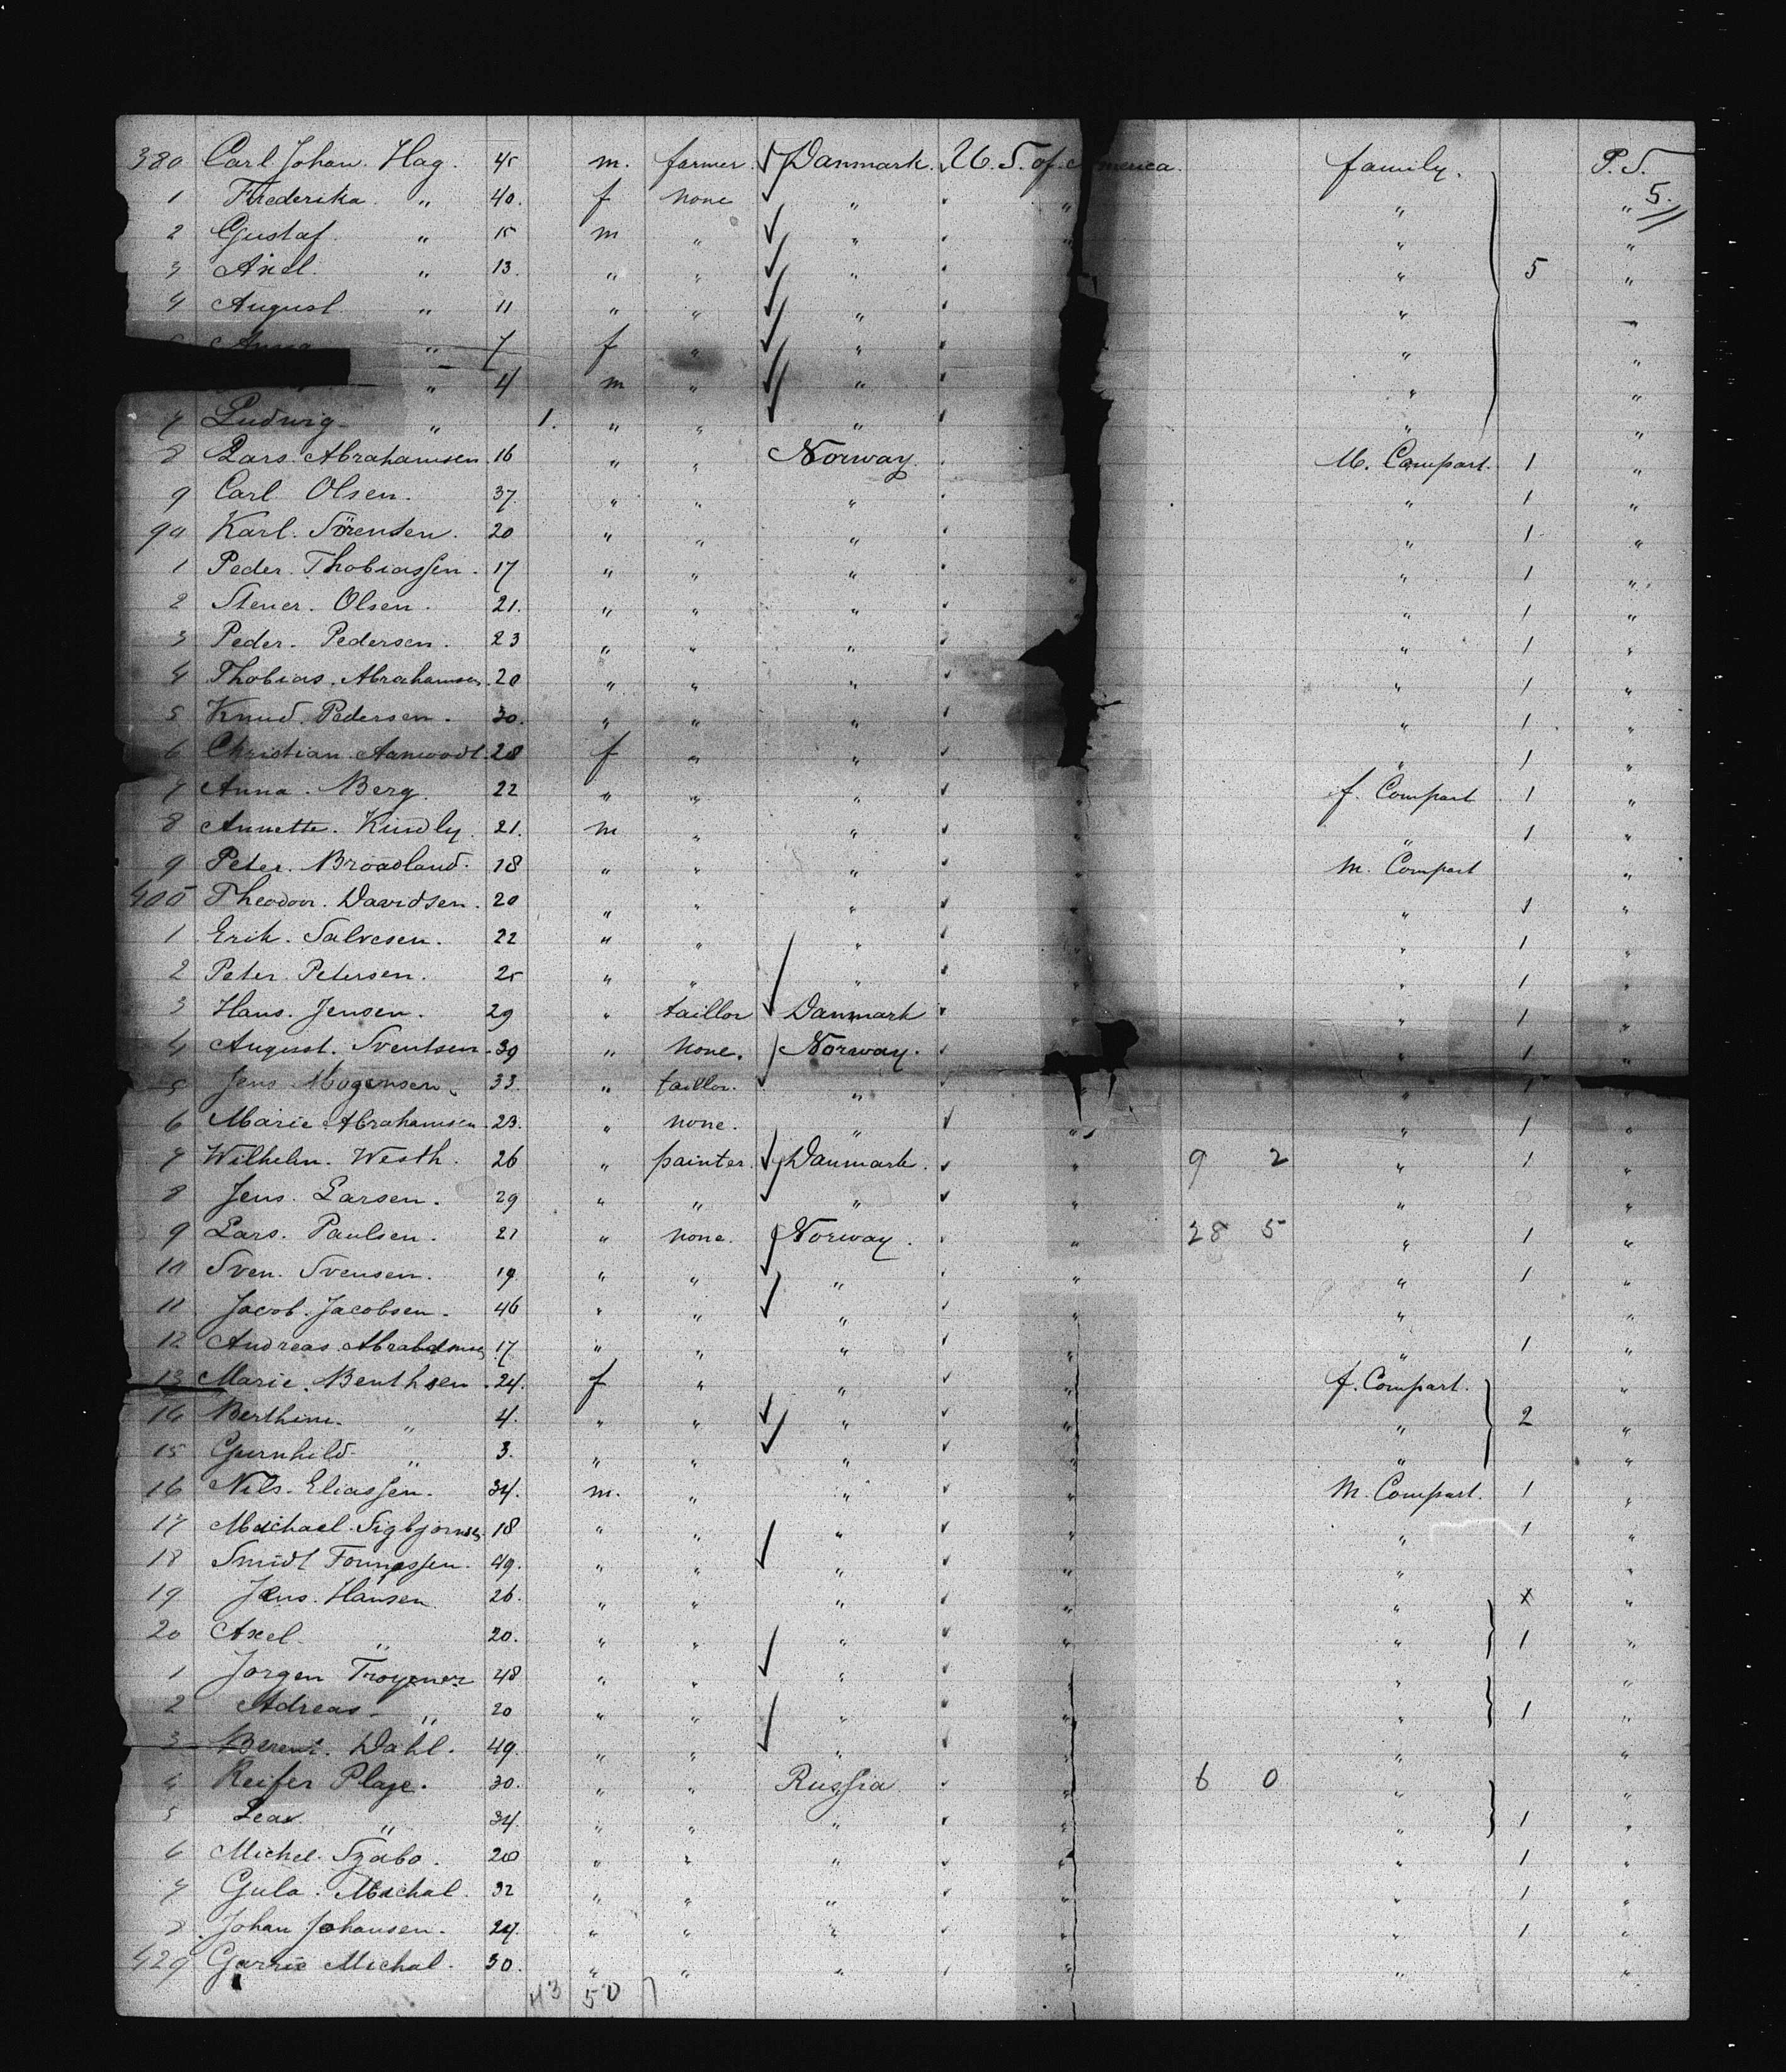 380 Carl Johan. Hag. 45 m. farmer. Danmark. U. S. of America. family. P. S.
1 Frederika. " 40. f none " " " " 5.
2 Gustaf. " 15 m " " " " "
3 Axel. " 13. " " " " " 5 "
4 August " 11 " " " " "
Anna " 7 f " " " "
" 4 m " " " "
7 Ludwig " 1. " " " " "
8 Lars. Abrahamsen. 16 " " Norway. M. Compart. 1 "
9 Carl Olsen. 37. " " " " 1 "
90 Karl. Sörensen. 20 " " " " 1 "
1 Peder. Thobiassen. 17 " " " " " 1 "
2 Stener. Olsen. 21. " " " " 1 "
3 Peder. Pedersen. 23 " " " " 1 "
4 Thobias. Abrahamsen. 20 " " " " 1 "
5 Knud. Pedersen. 30. " " " " 1 "
6 Christian. 28 f " " " 1 "
7 Anna. Berg. 22 " " " " f. Compart 1 "
8 Annette. Kindly. 21. m " " " " 1 "
9 Peter. Broadland. 18 " " " " M. Compart "
400 Theodor. Davidsen. 20 " " " " " 1 "
1 Erik. Salvesen. 22 " " " " " 1 "
2 Peter. Petersen. 25 " " " " " 1 "
3 Hans. Jensen. 29 " taillor Danmark " " 1 "
4 August. Sventsen. 39 " none. Norway. " 1 "
5 Jens Mogensen. 33. " taillor. " " " 1 "
6 Marie. Abrahamsen. 23. " none. " " " 1 "
7 Wilhelm. Westh. 26 " painter. Danmark. " 9 2 " 1 "
8 Jens. Larsen. 29 " " " " " "
9 Lars. Paulsen. 21 " none. Norway. " 28 5 " 1 "
10 Sven. Svensen. 19. " " " " " 1 "
11 Jacob. Jacobsen. 46 " " " " " "
12 Andreas. 17 " " " " " 1 "
13 Marie. Benthsen. 24. f " " " f. Compart. "
14 Berthine. " 4. " " " " " 2 "
15 Gurnhild. " 3. " " " " " "
16 Nils. Eliassen. 34. m. " " " M. Compart. 1 "
17 Michael. Sigbjornsen 18 " " " " " 1 "
18 Smidt 49. " " " " " "
19 Jens. Hansen. 26. " " " " " x "
20 Axel. " 20. " " " " " 1 "
1 Jorgen 48 " " " " " "
2 Adreas " 20 " " " " " 1 "
3 Berent. Dahl. 49. " " " " " "
4 Reifer Plage. 30. " " Russia " 6 0 " "
5 Leax. " 34. " " " " " 1 "
6 Michel. Szabo. 28 " " " " " 1 "
7 Gula. Michal. 32 " " " " " 1 "
8 Johan Johansen. 24. " " " " " 1 "
429 Michal. 30. " " " " " "
43 50 7